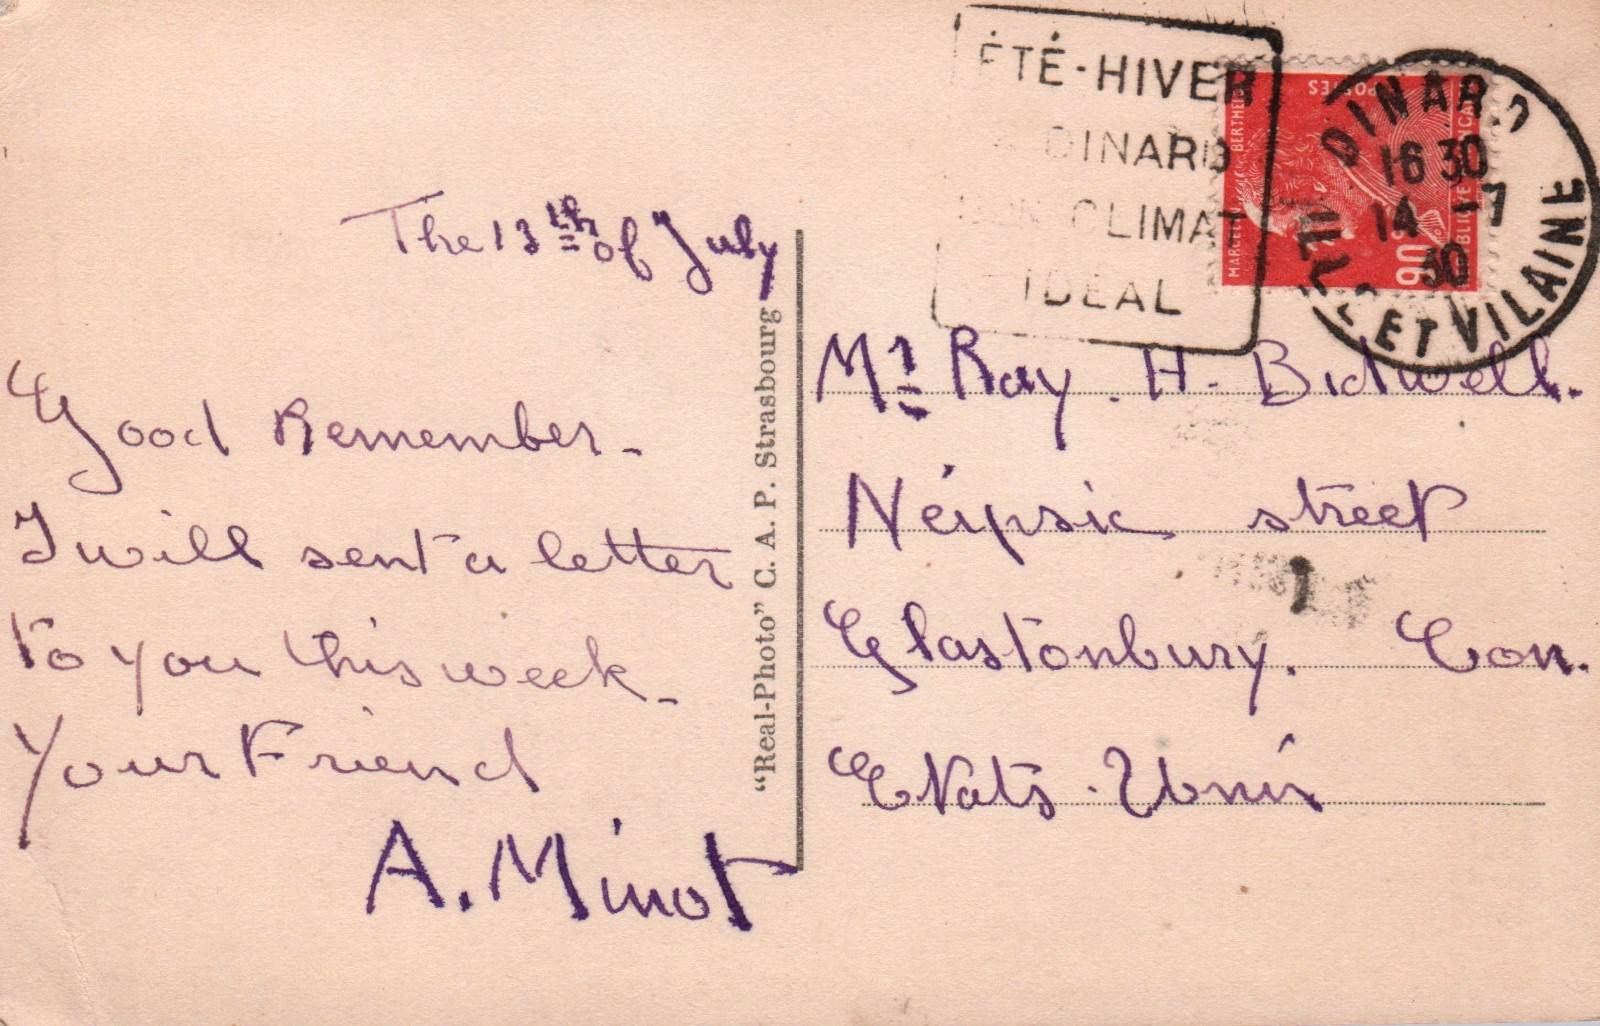 ÉTÉ-HIVER
A DINARD
SON CLIMAT
IDÉAL
DINARD
16 30
14 -7
30
ILLE ET VILAINE
POSTES
90
The 13th of July
Good Remember -
I will sent a letter
to you this week -
Your Friend
A. Minot
"Real-Photo" C. A. P. Strasbourg
Mr Ray. H. Bidwell.
Neipsic street
Glastonbury. Con.
Etats-Unis